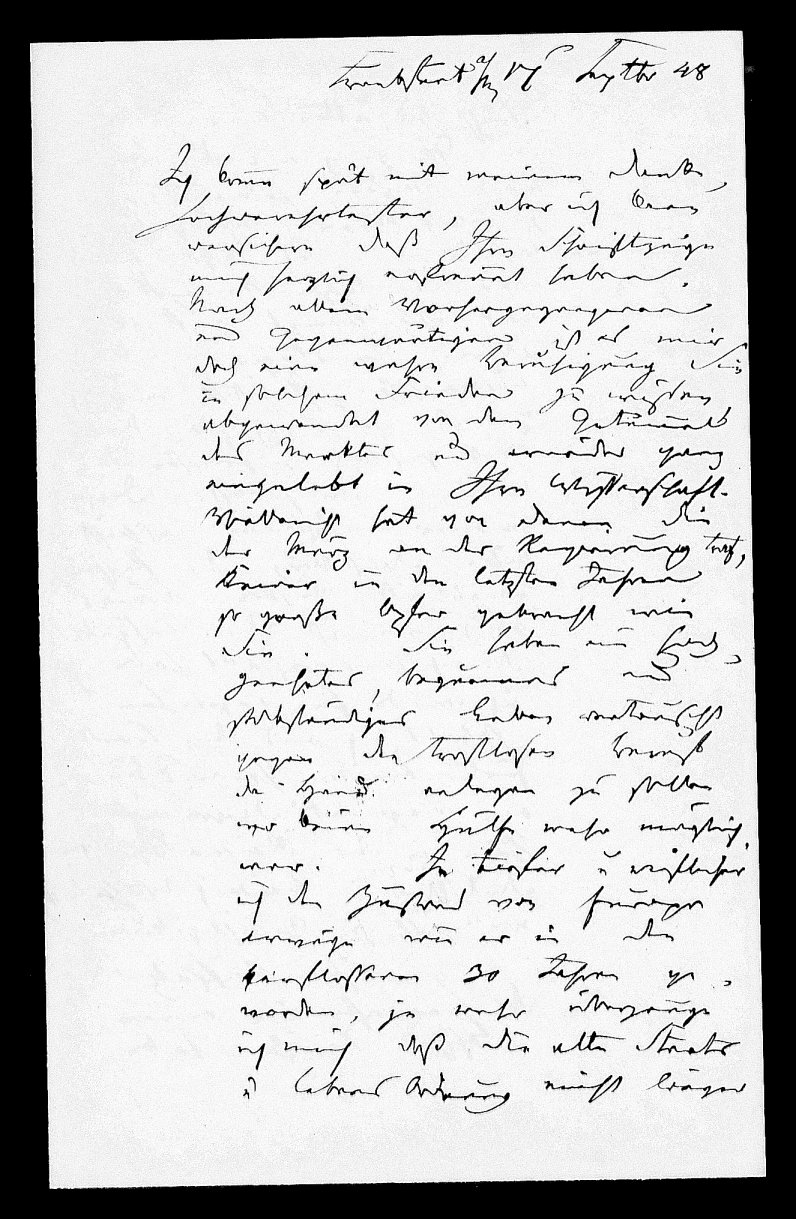 Frankfurt a/M 17 Septbr 48
Ich komme spät mit meinem Danke,
Hochverehrtester, aber ich kann
versichern daß Ihre Schriftzüge
mich herzlich erfreut haben.
Nach allem Vorhergegangenen
und Gegenwärtigen ist es mir
doch eine wahre Beruhigung Sie
in solchem Frieden zu wißen
abgewendet von dem Getümmel
des Marktes und wieder ganz
eingelebt in Ihre Wissenschaft.
Vielleicht hat von denen die
der März an der Regierung traf,
Keiner in den letzten Jahren
so große Opfer gebracht wie
Sie. Sie haben ein hoch-
geehrtes, bequemes und
selbständiges Leben vertauscht
gegen den trostlosen Beruf
da Hand anlegen zu sollen
wo keine Hülfe mehr möglich
war. Je tiefer u ernstlicher
ich den Zustand von Europa
erwäge wie er in den
verflossenen 30 Jahren ge-
worden, je mehr überzeuge
ich mich daß die alte Staats
u Lebens Ordnung nicht länger